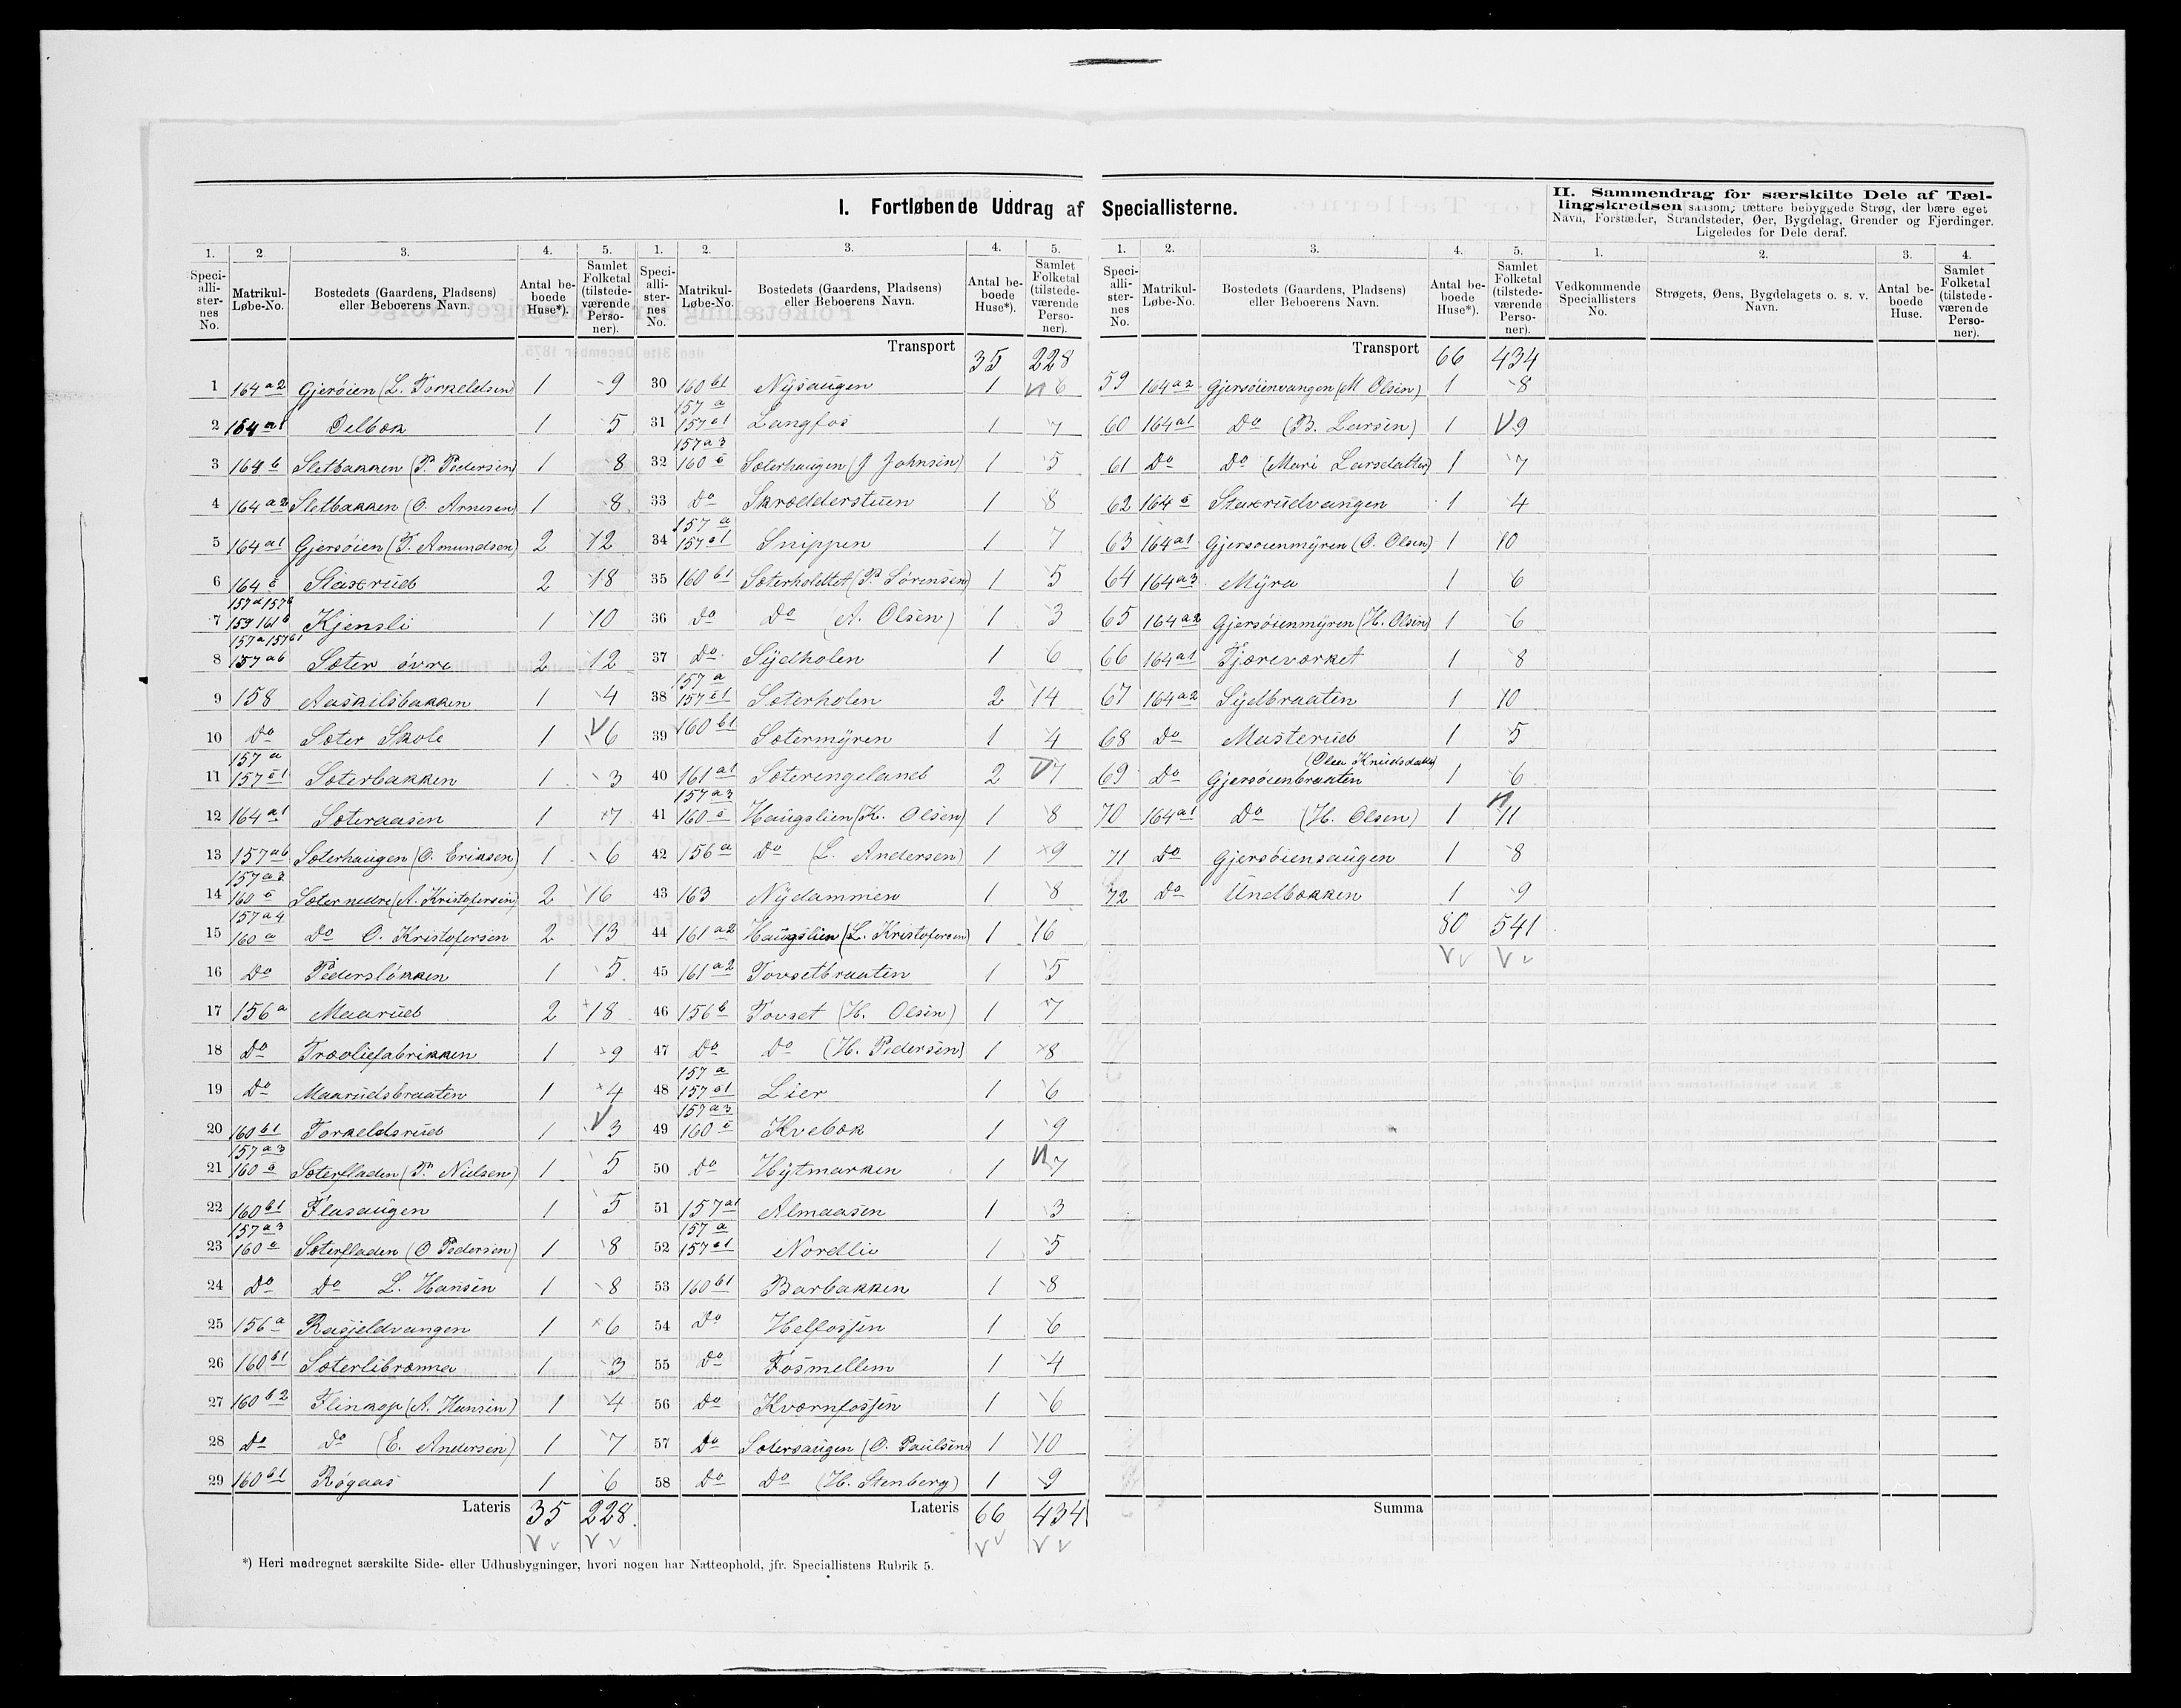 I. Fortløbende Uddrag af Speciallisterne.
II. Sammendrag for særskilte Dele af Tæl-
lingskredsen saasom: tættere bebyggede Strøg, der bære eget
Navn, Forstæder, Strandsteder, Øer, Bygdelag, Grender og Fjerdinger.
Ligeledes for Dele deraf.
1. 2. 3. 4. 5.
Speciallisternes No. Matrikul-Løbe-No. Bostedets (Gaardens, Pladsens) eller Beboerens Navn. Antal beboede Huse*). Samlet Folketal (tilstedeværende Personer).
1 164 a2 Gjerøien (L. Torkeldsen) 1 9
2 164 a1 Delbæk 1 5
3 164 b Sletbakken (P. Pedersen) 1 8
4 164 a2 Sletbakken (O. Arnesen) 1 8
5 164 a1 Gjersøien (T. Amundsen) 2 12
6 164 c Staxrud 2 18
157 a 157 b
7 159 161 b Kjensli 1 10
157 a 157 c1
8 157 a6 Sæter øvre 2 12
9 158 Aaskilsbakken 1 4
10 Do Sæter Skole 1 6
157 a
11 157 c1 Sæterbakken 1 3
12 164 a1 Sæteraasen 1 7
13 157 a6 Sæterhaugen (O. Eriksen) 1 6
157 a3
14 160 c Sæter nedre (A. Kristofersen) 2 16
157 a4
15 160 a Do O. Kristofersen 2 13
16 Do Pedersløkken 1 5
17 156 a Maarud 2 18
18 Do Træoliefabrikken 1 9
19 Do Maarudsbraaten 1 4
20 160 b1 Torkeldsrud 1 3
157 a3
21 160 c Sæterfladen (P. Nielsen) 1 5
22 160 b1 Flasaugen 1 5
157 a3
23 160 c Sæterfladen (O Pedersen) 1 8
24 Do Do L. Hansen 1 8
25 156 a Rasjeldvangen 1 6
26 160 b1 Sæterlibrænna 1 3
27 160 b2 Flinkop (A. Hansen) 1 4
28 Do Do (E. Andersen) 1 7
29 160 b1 Røgaas 1 6
Lateris 35 228
1. 2. 3. 4. 5.
Speciallisternes No. Matrikul-Løbe-No. Bostedets (Gaardens, Pladsens) eller Beboerens Navn. Antal beboede Huse*). Samlet Folketal (tilstedeværende Personer).
Transport 35 228
30 160 b1 Nysaugen 1 6
157 a
31 157 c1 Langfos 1 7
157 a3
32 160 c Sæterhaugen (J Johnsen) 1 5
33 Do Skrædderstuen 1 8
157 a
34 157 c1 Snippen 1 7
35 160 b1 Sæterholettet (P. Sørensen) 1 5
36 Do Do (A. Olsen) 1 3
37 Do Sydholen 1 6
157 a
38 157 c1 Sæterholen 2 14
39 160 b1 Sætermyren 1 4
40 161 a1 Sæterengeland 2 7
157 a3
41 160 c Haugslien (K. Olsen) 1 8
42 156 a Do (L. Andersen) 1 9
43 163 Nydammen 1 8
44 161 a2 Haugslien (L. Kristofersen) 1 16
45 161 a2 Tovsetbraaten 1 5
46 156 b Tovset (H. Olsen) 1 7
47 Do Do (H. Pedersen) 1 8
157 a
48 157 c1 Lier 1 6
157 a3
49 160 c Kvebæk 1 9
50 Do Hytmarken 1 7
51 157 a1 Almaasen 1 3
157 a
52 157 c1 Nordlie 1 5
53 160 b1 Barbakken 1 8
54 Do Helfossen 1 6
55 Do Fosmellem 1 4
56 Do Kværnfossen 1 6
57 Do Sætersaugen (O. Paulsen) 1 10
58 Do Do (H. Stenberg) 1 9
Lateris 66 434
1. 2. 3. 4. 5.
Speciallisternes No. Matrikul-Løbe-No. Bostedets (Gaardens, Pladsens) eller Beboerens Navn. Antal beboede Huse*). Samlet Folketal (tilstedeværende Personer).
Transport 66 434
59 164 a2 Gjersøienvangen (M Olsen) 1 8
60 164 a1 Do (B. Larsen) 1 9
61 Do Do (Mari Larsdatter) 1 7
62 164 c Staxrudvangen 1 4
63 164 a1 Gjersøienmyren (O. Olsen) 1 10
64 164 a3 Myra 1 6
65 164 a2 Gjersøienmyren (H. Olsen) 1 6
66 164 a1 Tjæreværket 1 8
67 164 a2 Sydbraaten 1 10
68 Do Masterud 1 5
(Olea Knudsdatter)
69 Do Gjersøienbraaten 1 6
70 164 a1 Do (H. Olsen) 1 11
71 Do Gjersøiensaugen 1 8
72 Do Undbækken 1 9
80 541
Summa
1. 2. 3. 4.
Vedkommende Speciallisters No. Strøgets, Øens, Bygdelagets o. s. v. Navn. Antal beboede Huse. Samlet Folketal (tilstedeværende Personer).
*) Heri medregnet særskilte Side- eller Udhusbygninger, hvori nogen har Natteophold, jfr. Speciallistens Rubrik 5.